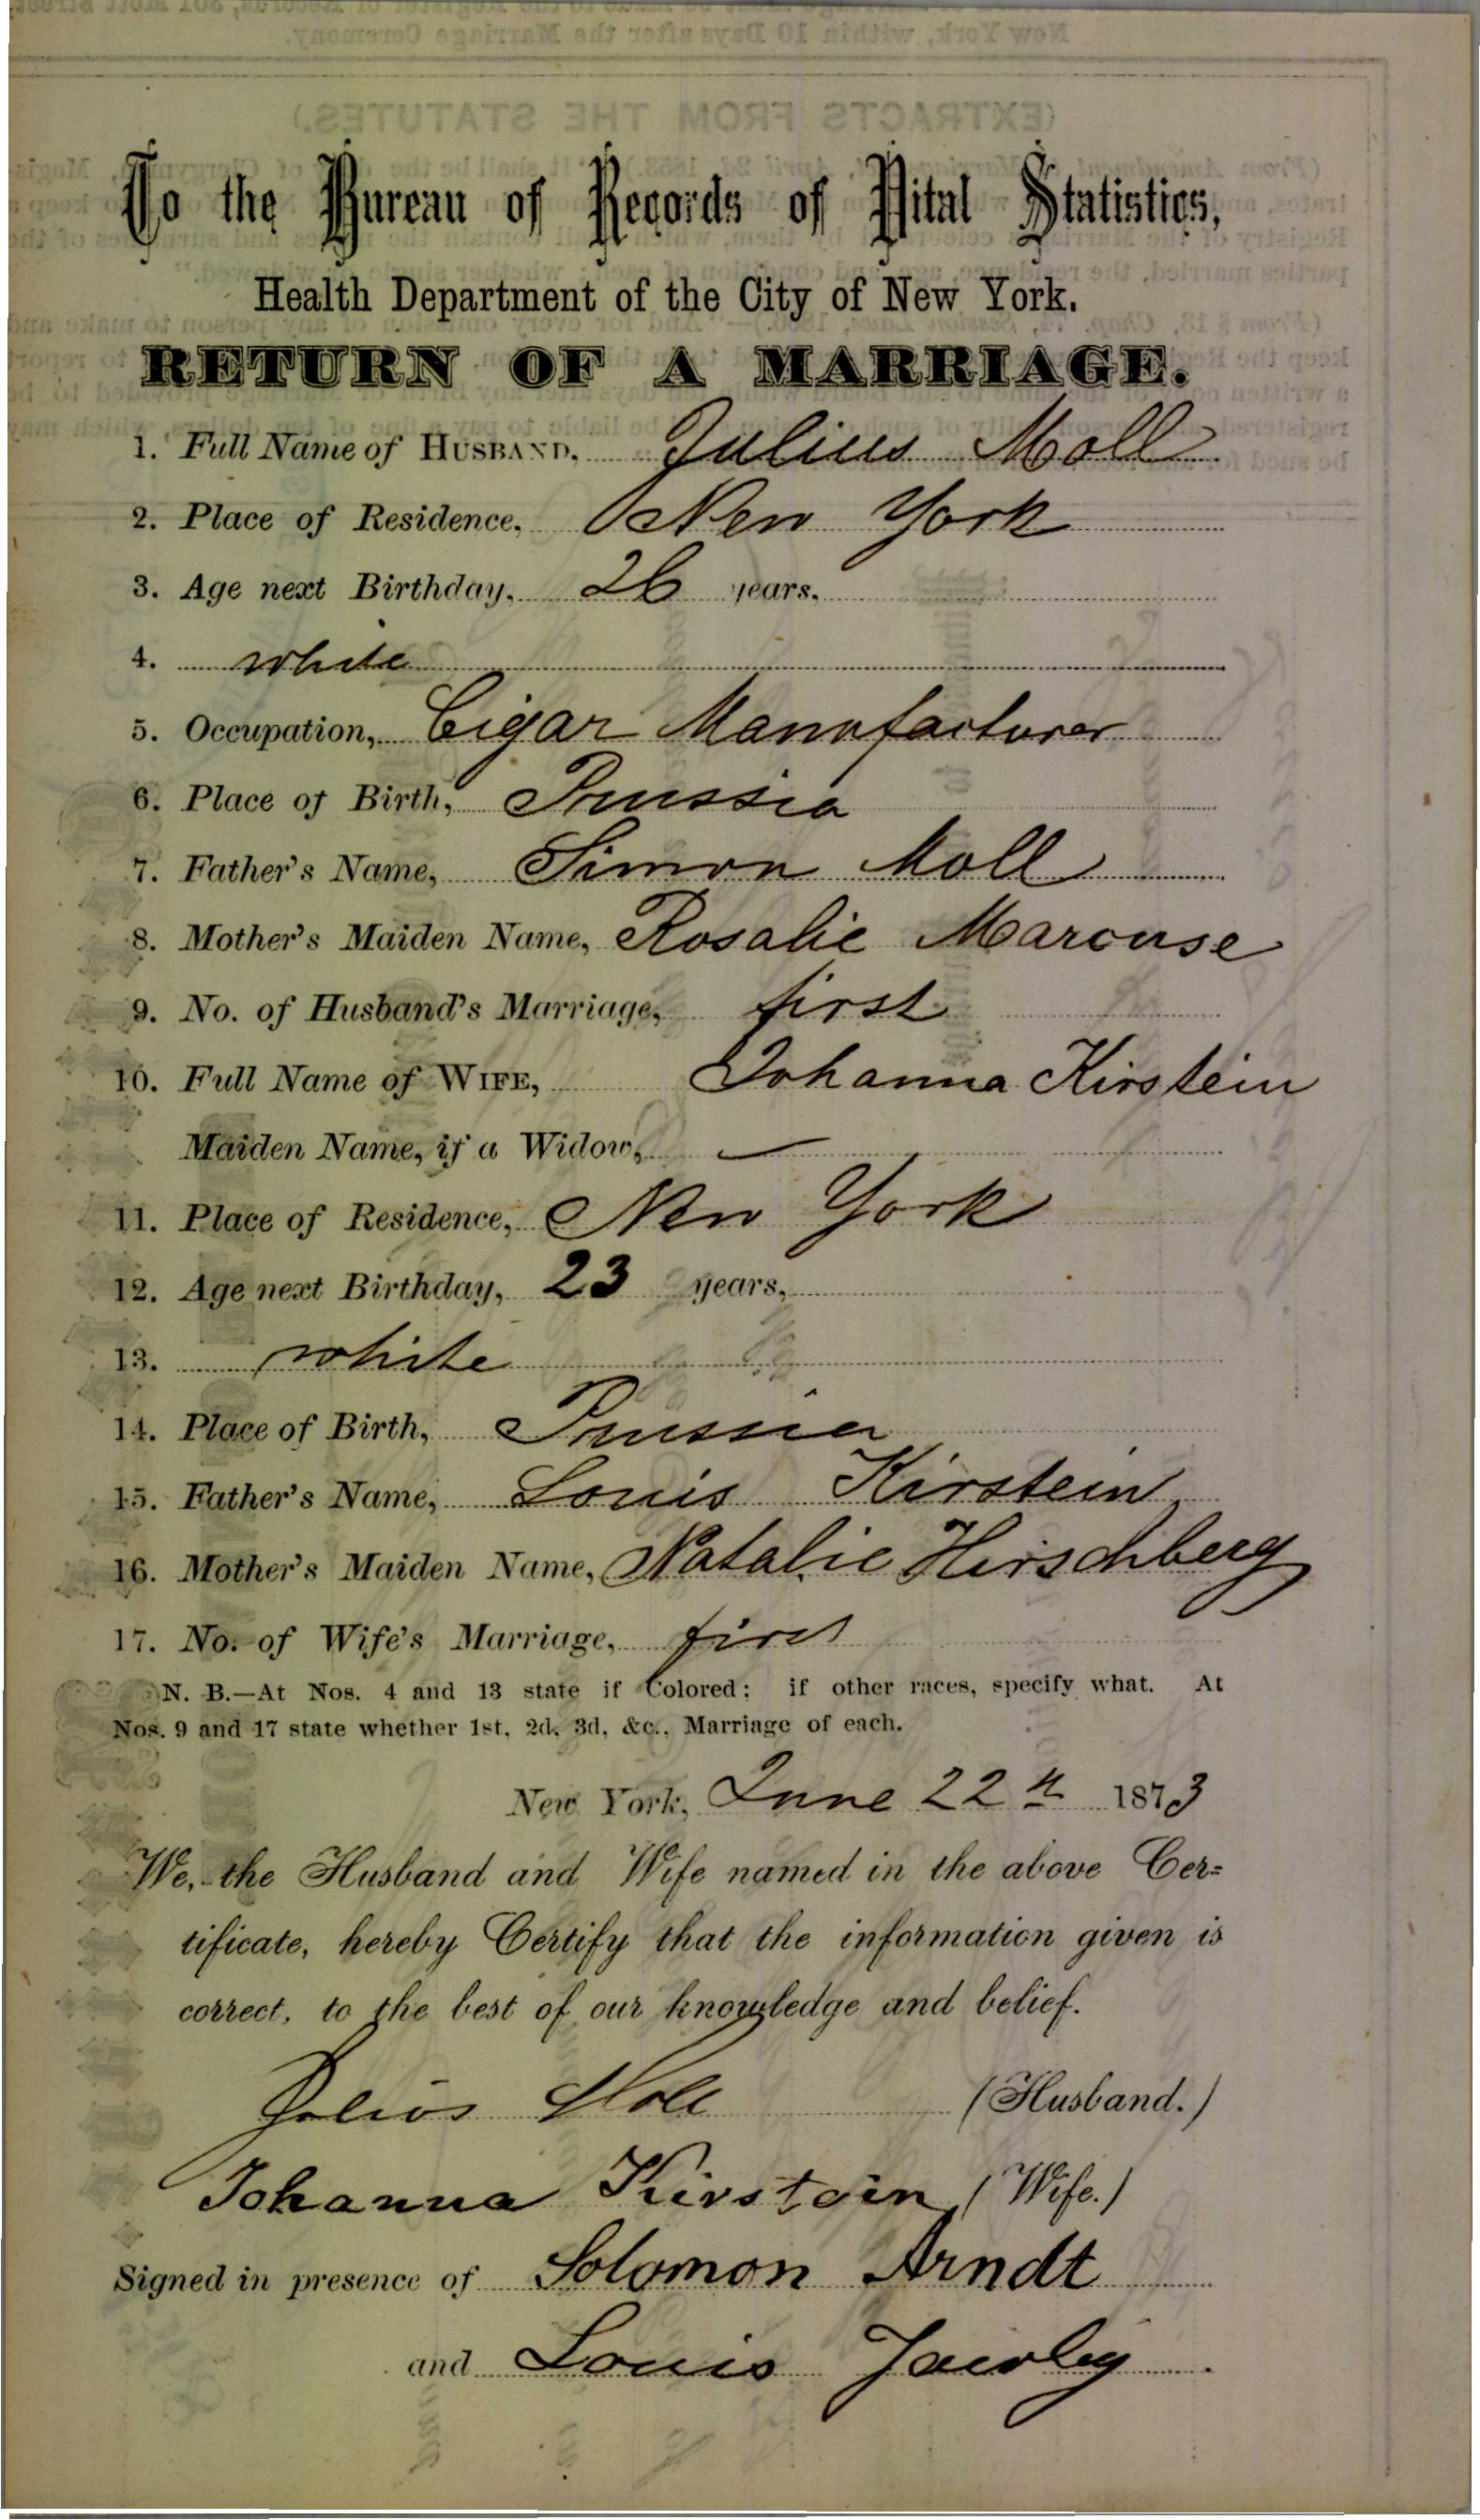 To the Bureau of Records of Vital Statistics,
Health Department of the City of New York.
RETURN OF A MARRIAGE.
1. Full Name of HUSBAND, Julius Moll
2. Place of Residence, New York
3. Age next Birthday, 26 years,
4. white
5. Occupation, Cigar Manufacturer
6. Place of Birth, Prussia
7. Father's Name, Simon Moll
8. Mother's Maiden Name, Rosalie Marcuse
9. No. of Husband's Marriage, first
10. Full Name of WIFE, Johanna Kirstein
Maiden Name, if a Widow, —
11. Place of Residence, New York
12. Age next Birthday, 23 years,
13. white
14. Place of Birth, Prussia
15. Father's Name, Louis Kirstein
16. Mother's Maiden Name, Natalie Hirschberg
17. No. of Wife's Marriage, first
N. B.—At Nos. 4 and 13 state if Colored; if other races, specify what. At
Nos. 9 and 17 state whether 1st, 2d, 3d, &c., Marriage of each.
New York, June 22th 1873
We, the Husband and Wife named in the above Cer=
tificate, hereby Certify that the information given is
correct, to the best of our knowledge and belief.
Julius Moll (Husband.)
Johanna Kirstein (Wife.)
Signed in presence of Solomon Arndt
and Louis